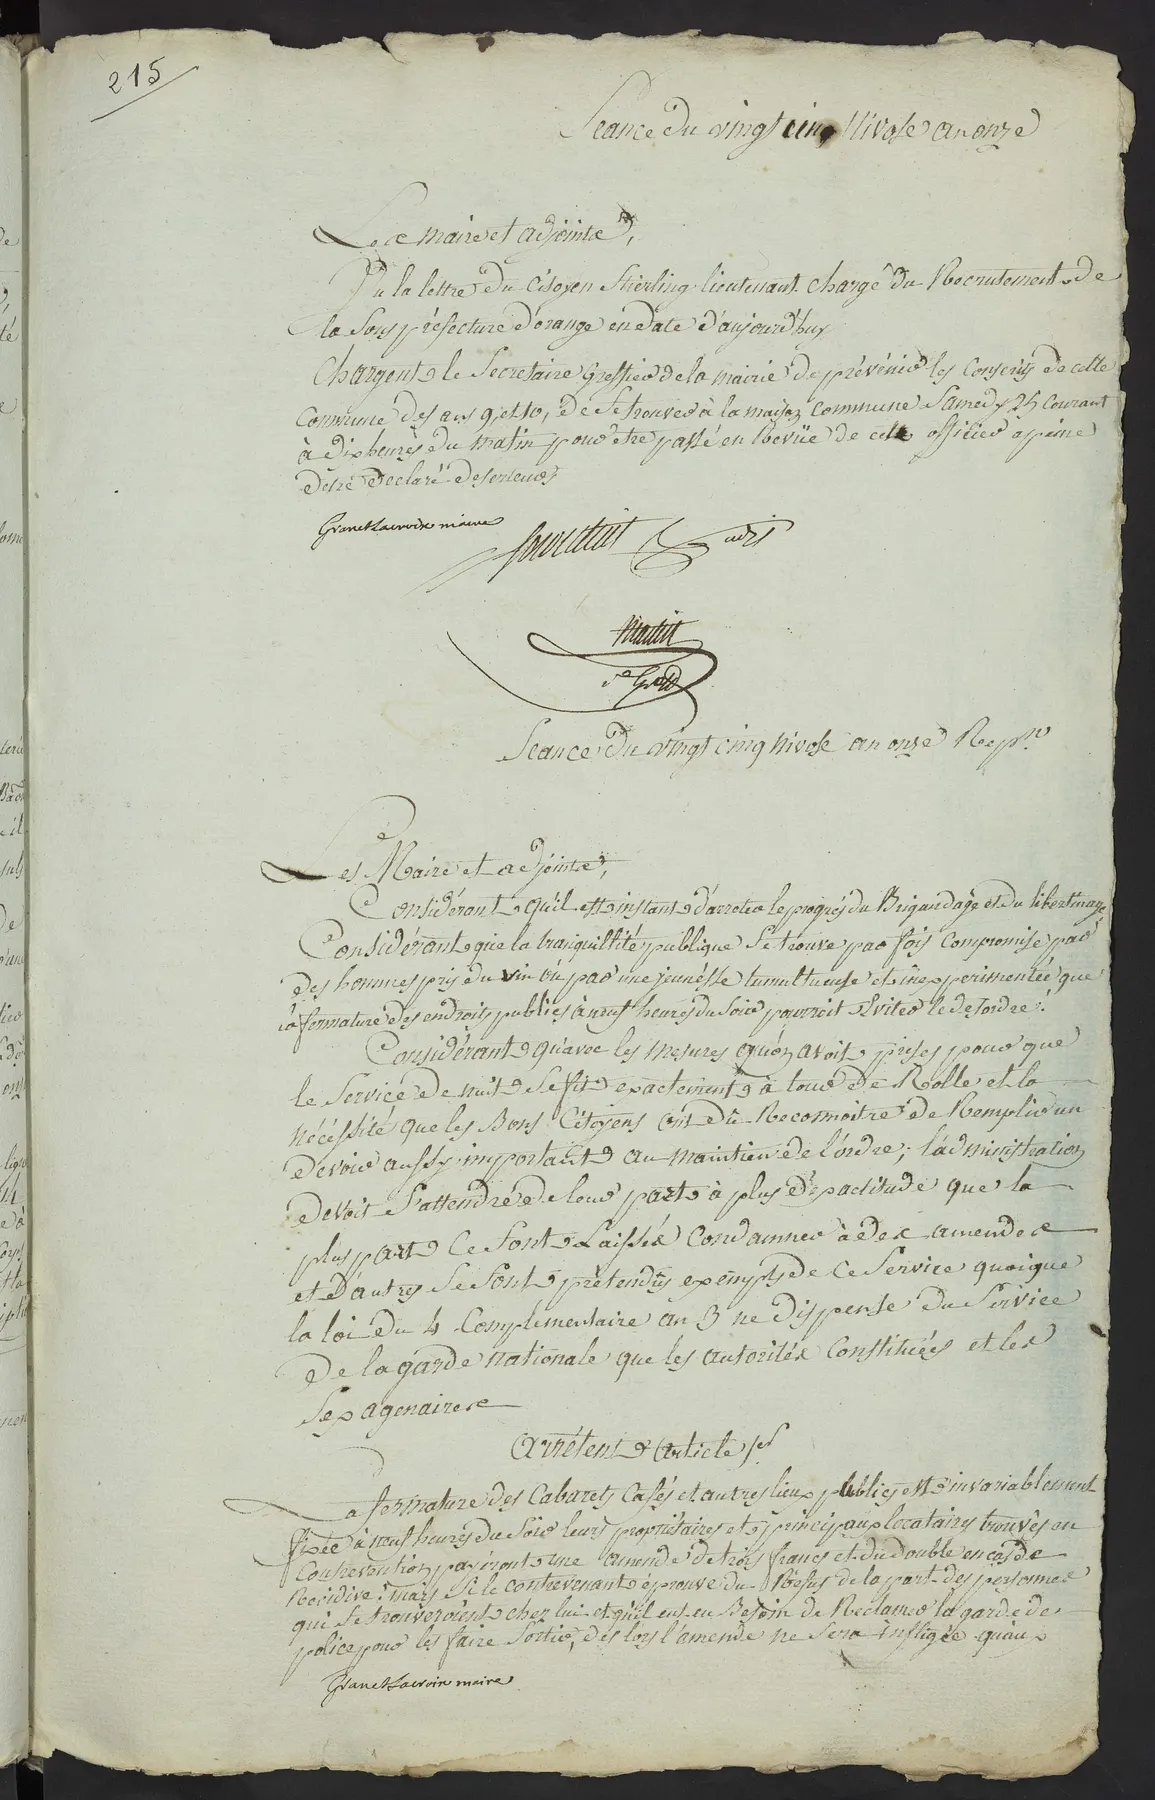 215
Seance du vingt cinq Nivose an onze
Les maire et adjoints,
Vu la lettre du Citoyen Stierling lieutenant chargé du Recrutement de
la Sous préfecture d'orange en date d'aujourd'huy
Chargent le Secretaire Greffier de la mairie de prévénir les Conscrits de cette
Commune des ans 9 et 10, de se trouver à la maison Commune Samedy 25 Courant
à dix heures du matin pour être passé en Revüe de cet officier a peine
d'etre declaré deserteurs
Granet Lacroix maire
Nivose
Seance du vingt cinq Nivose an onze Rep.n
Les Maire et adjoints,
Considérant qu'il est instant d'arreter le progrès du Brigandage et du libertinage
Considérant que la tranquillité publique se trouve par fois compromise par
des hommes pris du vin ou par une jeunesse tumultueuse et inexperimentée que
la fermature des endroits publics à neuf heures du Soir pourroit Eviter le desordre.
Considérant qu'avec les mesures qu'on avoit prises pour que
le Service de nuit se fit exactement à tour de Rolle et la
nécéssité que les Bons Citoyens ont dû Reconnoitre de Remplir un
devoir aussy important au maintien de l'ordre, l'administration
devoit S'attendre de leur part à plus d'exactitude que la
plus part Ce Sont Laissés Condamner à des amendes
et d'autres Se Sont prétendus exempts de Ce Service quoique
la loi du 4 Complementaire an 3 ne dispense du Service
de la garde nationale que les autorités Constituées et les
Sexagenaires
Arrêtent Article 1er
La fermature des Cabarets Cafés et autres lieux publics est invariablement
fixée à neuf heures du Soir leurs propriétaires et principaux locataires trouvés en
Contrevention payeront une amende de trois francs et du double en cas de
Recidive: mais si le contrevenant éprouve du Refus de la part des personnes
qui Se trouveroient chez lui et qu'il eut eu Besoin de Réclamer la garde de
police pour les faire Sortir, des lors l'amende ne Sera infligée qu'aux
Granet Lacroix maire